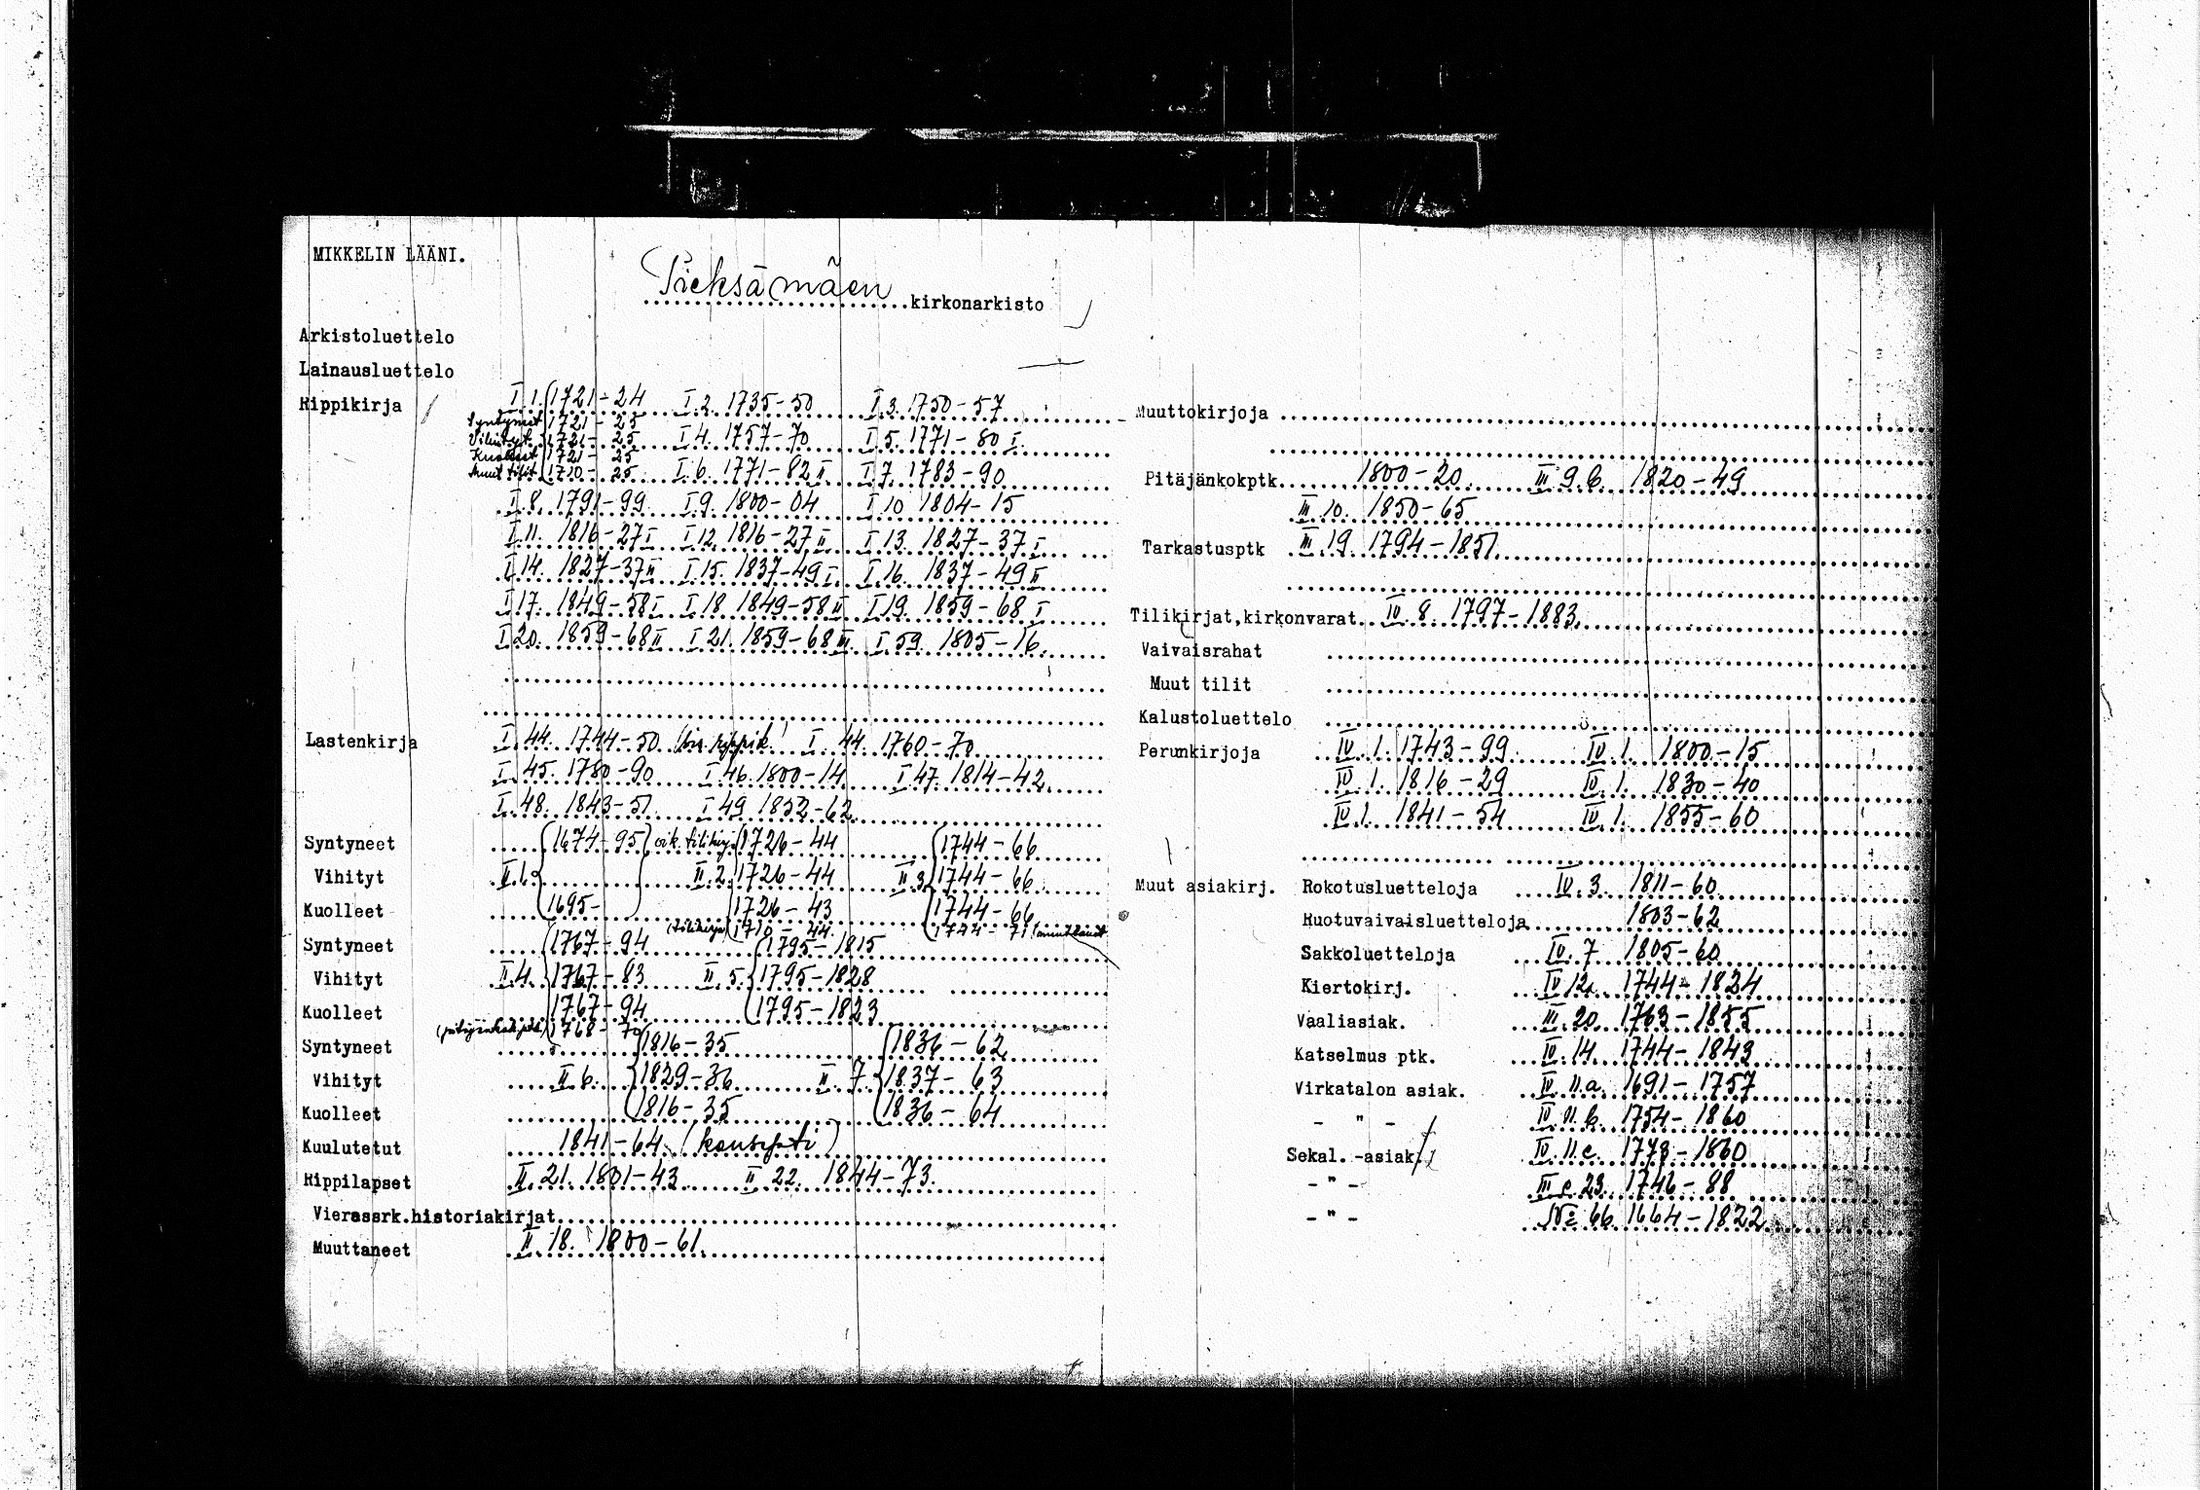 MIKKELIN LÄÄNI.
Pieksämäen kirkonarkisto
Arkistoluettelo
Lainausluettelo
Rippikirja I.1. 1721-24 I.2. 1735-50 I.3. 1750-57
Syntyneet 1721-25
Vihityt 1721-25 I.4. 1757-70 I.5. 1771-80 I.
Kuolleet 1721-25
Muut tilit 1710-25 I.6. 1771-82 II I.7. 1783-90
I.8. 1791-99 I.9. 1800-04 I.10 1804-15
I.11. 1816-27 I I.12. 1816-27 II I.13. 1827-37 I
I.14. 1827-37 II I.15. 1837-49 I. I.16. 1837-49 II
I.17. 1849-58 I I.18. 1849-58 II I.19. 1859-68 I
I.20. 1859-68 II I.21. 1859-68 III. I.59. 1805-16.
Lastenkirja I.44. 1744-50 I.44. 1760-70
I.45. 1780-90 I.46. 1800-14 I.47. 1814-42
I.48. 1843-51 I.49. 1852-62
Syntyneet 1674-95 1726-44 1744-66
Vihityt II.1. II.2. 1726-44 II.3. 1744-66
Kuolleet 1695- 1726-43 1744-66
(tilikirja 1710-44 1744-71
Syntyneet 1767-94 1795-1815
Vihityt II.4. 1767-83 II.5. 1795-1828
Kuolleet 1767-94 1795-1823
1768-70
Syntyneet 1816-35 1836-62
Vihityt II.6. 1829-36 II.7. 1837-63
Kuolleet 1816-35 1836-64
Kuulutetut 1841-64 (konsepti)
Rippilapset II.21. 1801-43 II.22. 1844-73.
Vierassrk.historiakirjat
Muuttaneet II.18. 1800-61.
Muuttokirjoja
Pitäjänkokptk. 1800-20 III.9.b. 1820-49
III.10. 1850-65
Tarkastusptk III.19. 1794-1851
Tilikirjat,kirkonvarat. IV.8. 1797-1883
Vaivaisrahat
Muut tilit
Kalustoluettelo
Perunkirjoja IV.1. 1743-99 IV.1. 1800-15
IV.1. 1816-29 IV.1. 1830-40
IV.1. 1841-54 IV.1. 1855-60
Muut asiakirj. Rokotusluetteloja IV.3. 1811-60
Ruotuvaivaisluetteloja 1803-62
Sakkoluetteloja IV.7 1805-60
Kiertokirj. IV 12. 1744-1824
Vaaliasiak. III.20. 1763-1855
Katselmus ptk. IV.14. 1744-1843
Virkatalon asiak. IV.11.a. 1691-1757
- " - IV.11.b. 1754-1860
Sekal. -asiak. IV.11.c. 1778-1860
- " - III c 23. 1746-88
- " - 66. 1664-1822